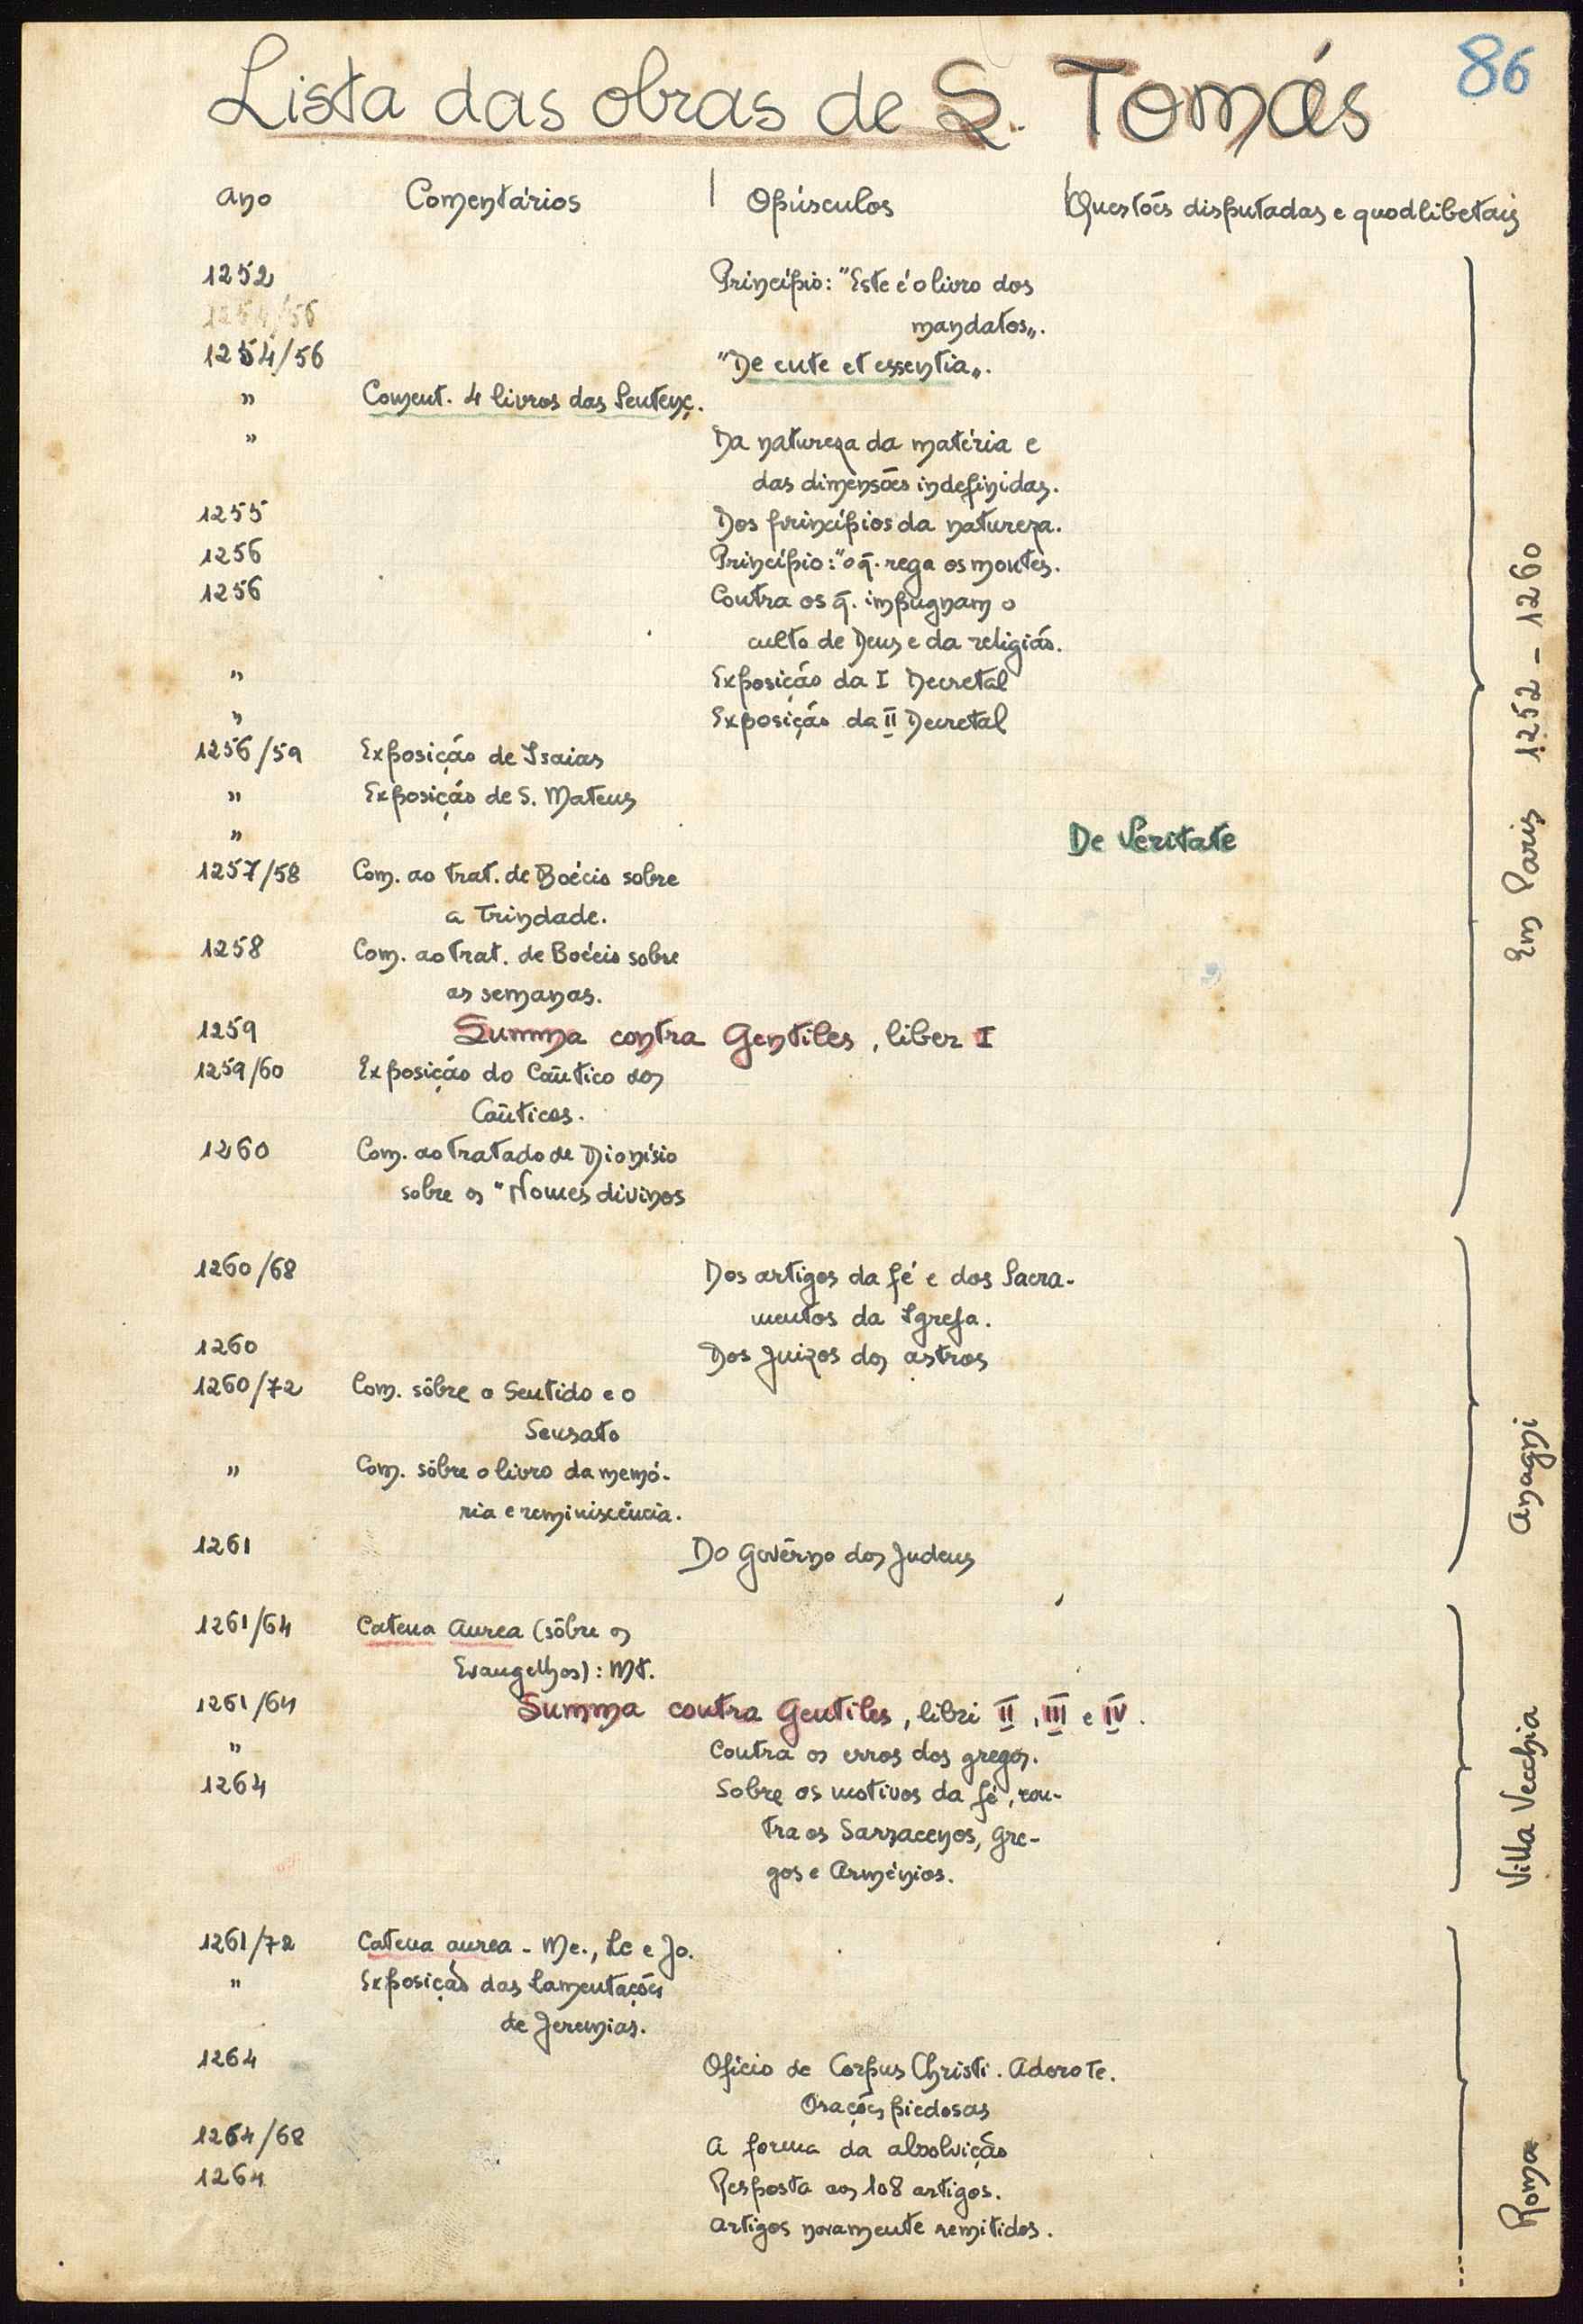 86
Lista das obras de S. Tomás
Ano Comentários | Opúsculos | Questões disputadas e quodlibetais
1252 Princípio: "Este é o livro dos
mandatos„.
1254/56 "De ente et essentia„.
" Coment. 4 livros das Sentenç.
" Da natureza da matéria e
das dimensões indefinidas.
1255 Dos princípios da natureza.
1256 Princípio: "o q̃. rega os montes.
1256 Contra os q̃. impugnam o
culto de Deus e da religião.
" Exposição da I Decretal
" Exposição da II Decretal
1256/59 Exposição de Isaias
" Exposição de S. Mateus
" De Veritate
1257/58 Com. ao trat. de Boécio sobre
a Trindade.
1258 Com. ao trat. de Boécio sobre
as semanas.
1259 Summa contra Gentiles, liber I
1259/60 Exposição do Cântico dos
Cânticos.
1260 Com. ao tratado de Dionísio
sobre os "Nomes divinos
Em Paris 1252 - 1260
1260/68 Dos artigos da fé e dos Sacra-
mentos da Igreja.
1260 Dos Juizos dos astros
1260/72 Com. sôbre o Sentido e o
Sensato
" Com. sôbre o livro da memó-
ria e reminiscência.
1261 Do Govêrno dos Judeus
Anagni
1261/64 Catena Aurea (sôbre os
Evangelhos): Mt.
1261/64 Summa contra Gentiles, libri II, III e IV.
" Contra os erros dos gregos.
1264 Sobre os motivos da fé, con-
tra os Sarracenos, Gre-
gos e Arménios.
Villa Vecchia
1261/72 Catena aurea - Mc., Lc e Jo.
" Exposição das Lamentações
de Jeremias.
1264 Ofício de Corpus Christi. Adoro Te.
Orações piedosas
1264/68 A forma da absolvição
1264 Resposta aos 108 artigos.
Artigos novamente remitidos.
Roma